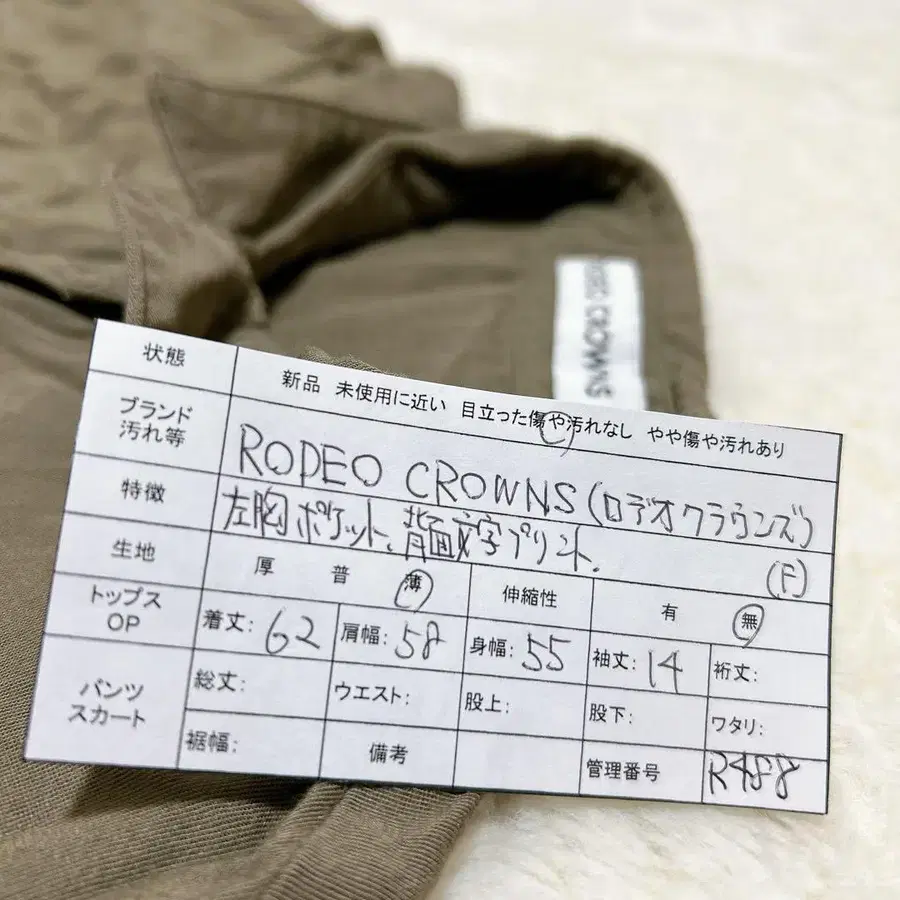 RODEO CROWNS
状態 新品 未使用に近い 目立った傷や汚れなし やや傷や汚れあり
ブランド 汚れ等 RODEO CROWNS (ロデオクラウンズ)
特徴 左胸ポケット、背面文字プリント. (F)
生地 厚 普 薄 伸縮性 有 無
トップス OP 着丈: 62 肩幅: 58 身幅: 55 袖丈: 14 裄丈:
パンツ スカート 総丈: ウエスト: 股上: 股下: ワタリ:
裾幅: 備考 管理番号 R488